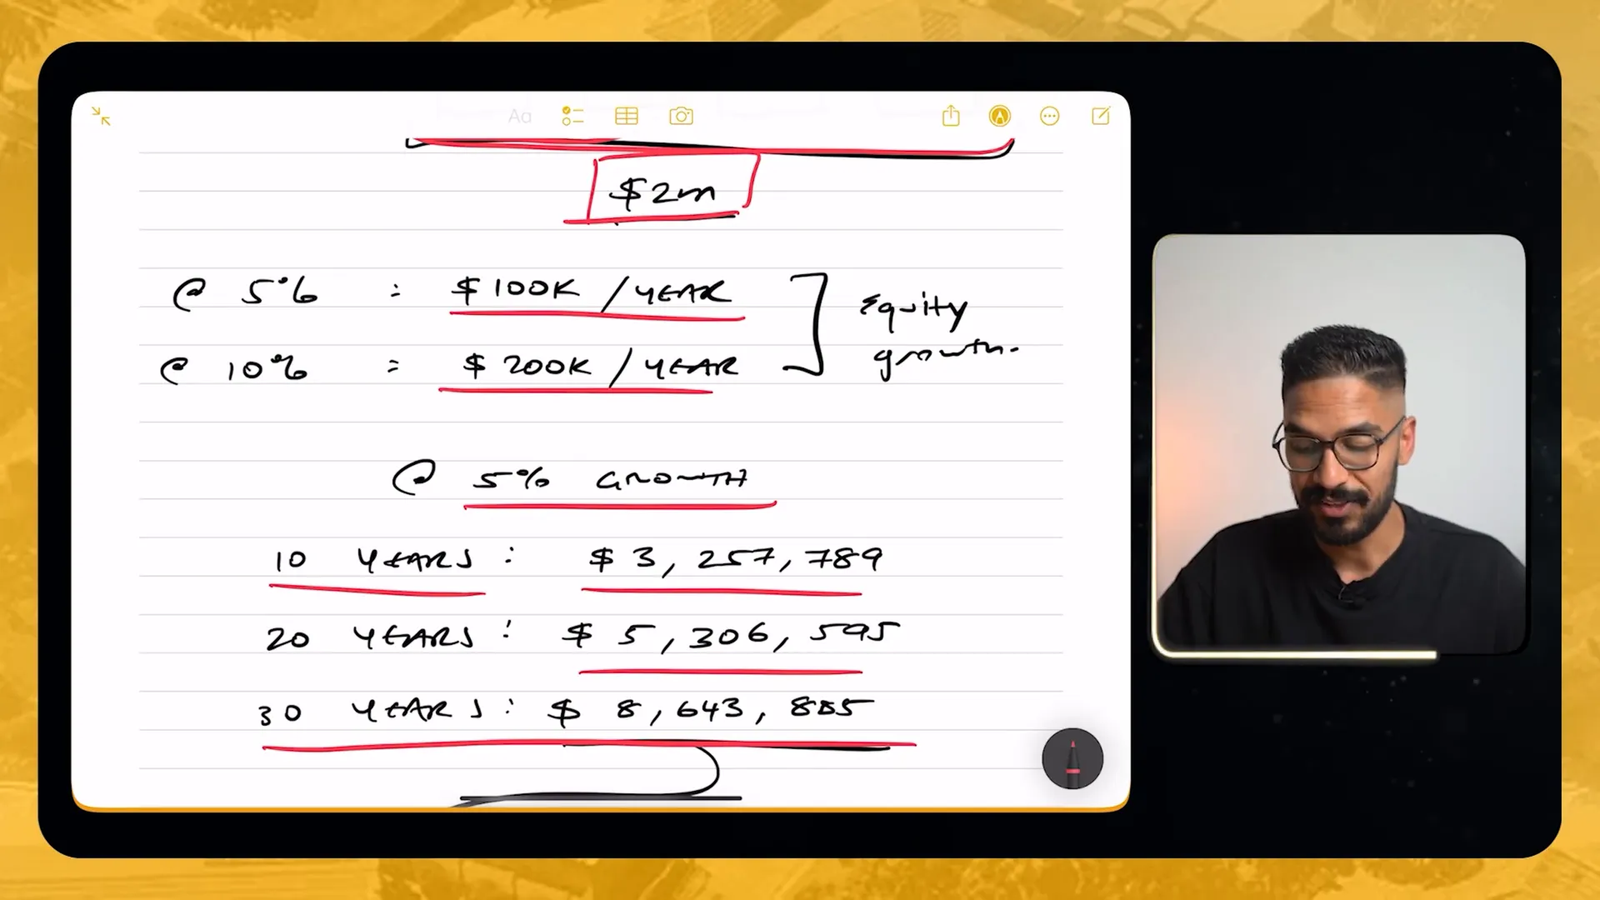 Aa
$2m
@ 5% = $100K / YEAR
@ 10% = $200K / YEAR
Equity growth.
@ 5% GROWTH
10 YEARS : $3,257,789
20 YEARS : $5,306,595
30 YEARS : $8,643,885